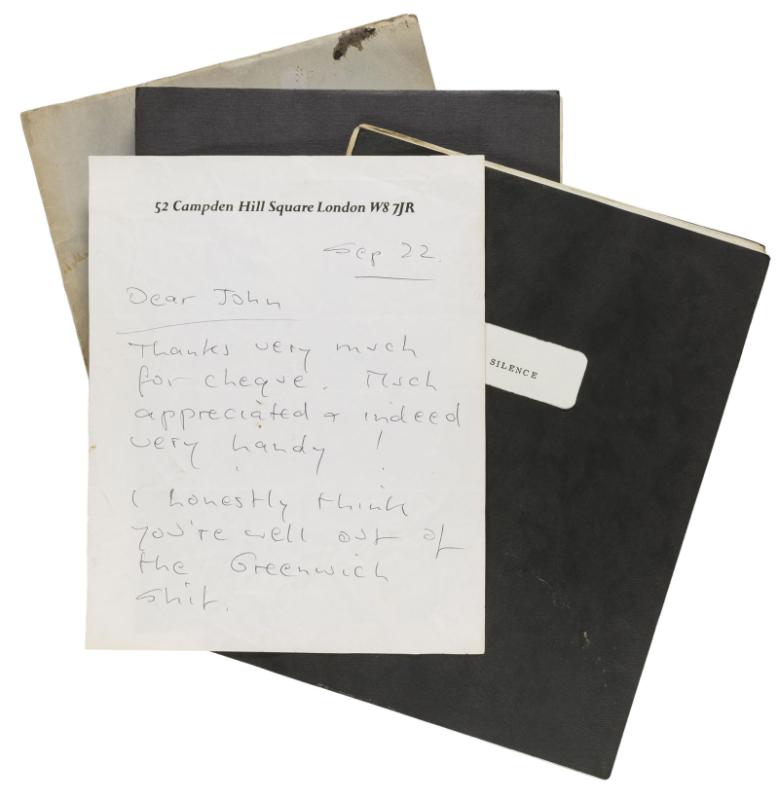 52 Campden Hill Square London W8 7JR
Sep 22.
Dear John
Thanks very much
for cheque. Much
appreciated & indeed
very handy !
I honestly think
you're well out of
the Greenwich
shit.
SILENCE